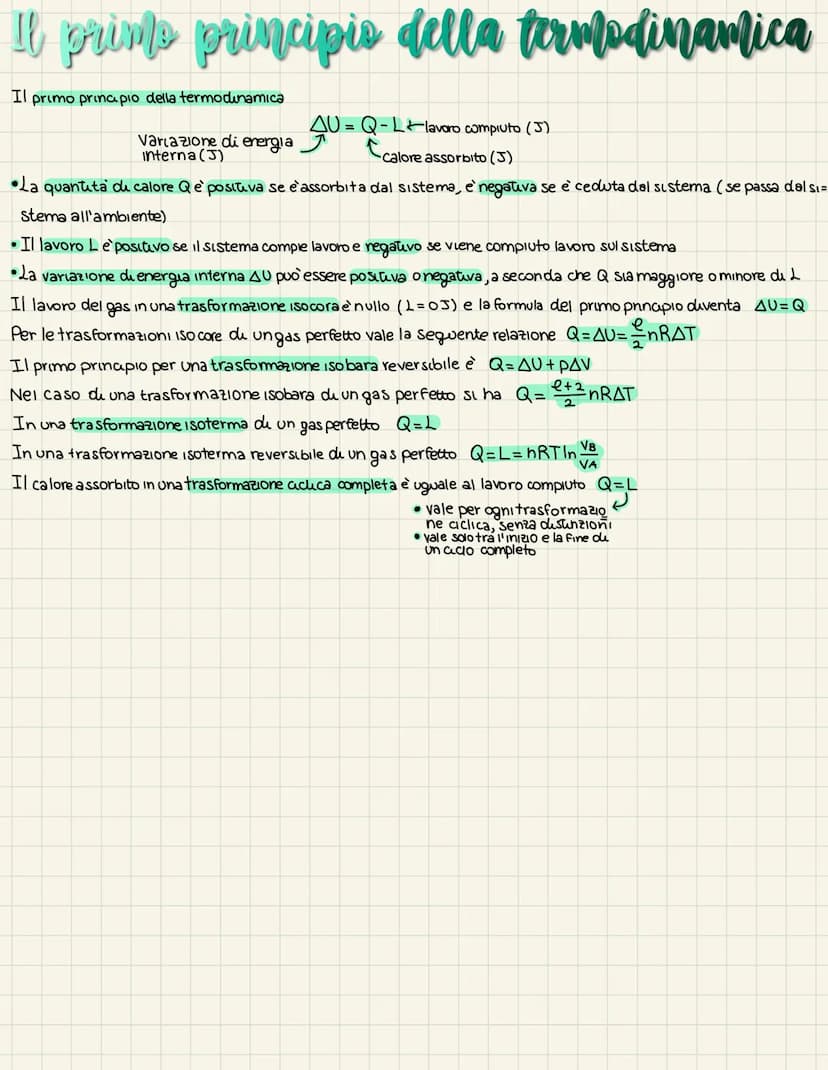 Il primo principio della termodinamica
Il primo principio della termodinamica
ΔU = Q - L ← lavoro compiuto (J)
Variazione di energia
interna (J)
calore assorbito (J)
•La quantità di calore Q è positiva se è assorbita dal sistema, è negativa se è ceduta dal sistema (se passa dal si=
stema all'ambiente)
•Il lavoro L è positivo se il sistema compie lavoro e negativo se viene compiuto lavoro sul sistema
•La variazione di energia interna ΔU può essere positiva o negativa, a seconda che Q sia maggiore o minore di L
Il lavoro del gas in una trasformazione isocora è nullo (L=0J) e la formula del primo principio diventa ΔU=Q
Per le trasformazioni isocore di un gas perfetto vale la seguente relazione Q=ΔU=ℓ/2 nRΔT
Il primo principio per una trasformazione isobara reversibile è Q=ΔU+pΔV
Nel caso di una trasformazione isobara di un gas perfetto si ha Q= ℓ+2/2 nRΔT
In una trasformazione isoterma di un gas perfetto Q=L
In una trasformazione isoterma reversibile di un gas perfetto Q=L=nRTln VB/VA
Il calore assorbito in una trasformazione ciclica completa è uguale al lavoro compiuto Q=L
• vale per ogni trasformazio
ne ciclica, senza distinzioni
• vale solo tra l'inizio e la fine di
un ciclo completo